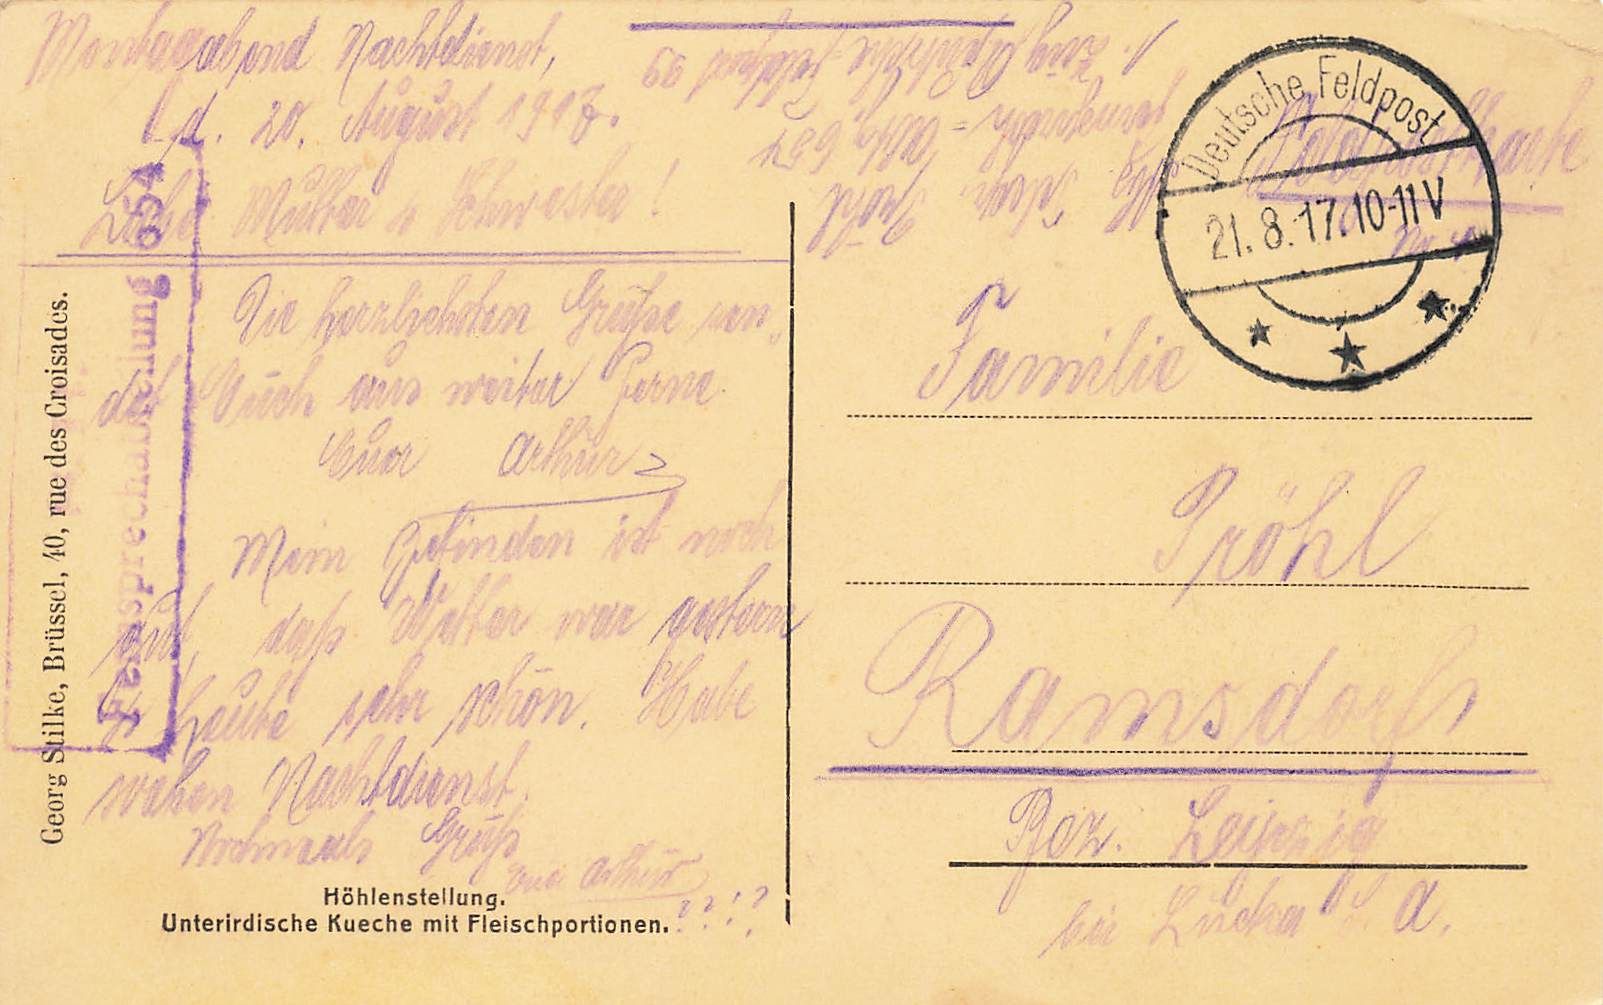 Montagabend Nachtdienst,
d. 20. August 1917.
Liebe Mutter u Schwester!
Die herzlichsten Grüße sen-
det Euch aus weiter Ferne
Euer Arthur
Mein Befinden ist noch
gut, daß Wetter war gestern
u heute sehr schön. Habe
soeben Nachtdienst.
Nochmals Gruß
Euer Arthur
Höhlenstellung.
Unterirdische Kueche mit Fleischportionen.
??!?
Georg Stilke, Brüssel, 40, rue des Croisades.
Fernsprechabteilung 654
Feldpostkarte
Pröhl
Fernsprech-Abtlg 654
1. Zug Deutsche Feldpost
Deutsche Feldpost
21.8.17.10-11V
Familie
Pröhl
Ramsdorf
Bez. Leipzig
bei Lucka S. A.